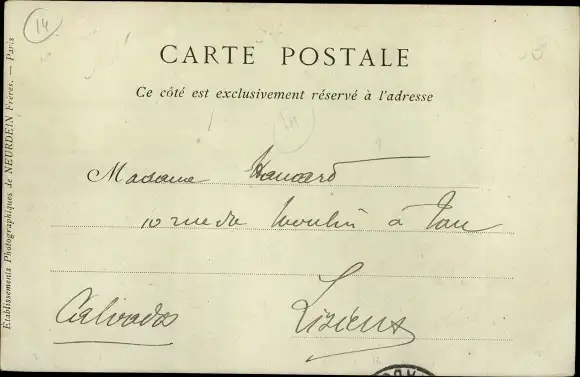 14
CARTE POSTALE
Ce côté est exclusivement réservé à l'adresse
Madame
10 rue du Moulin à Tan
Lisieux
Calvados
Etablissements Photographiques de NEURDEIN Frères. — Paris